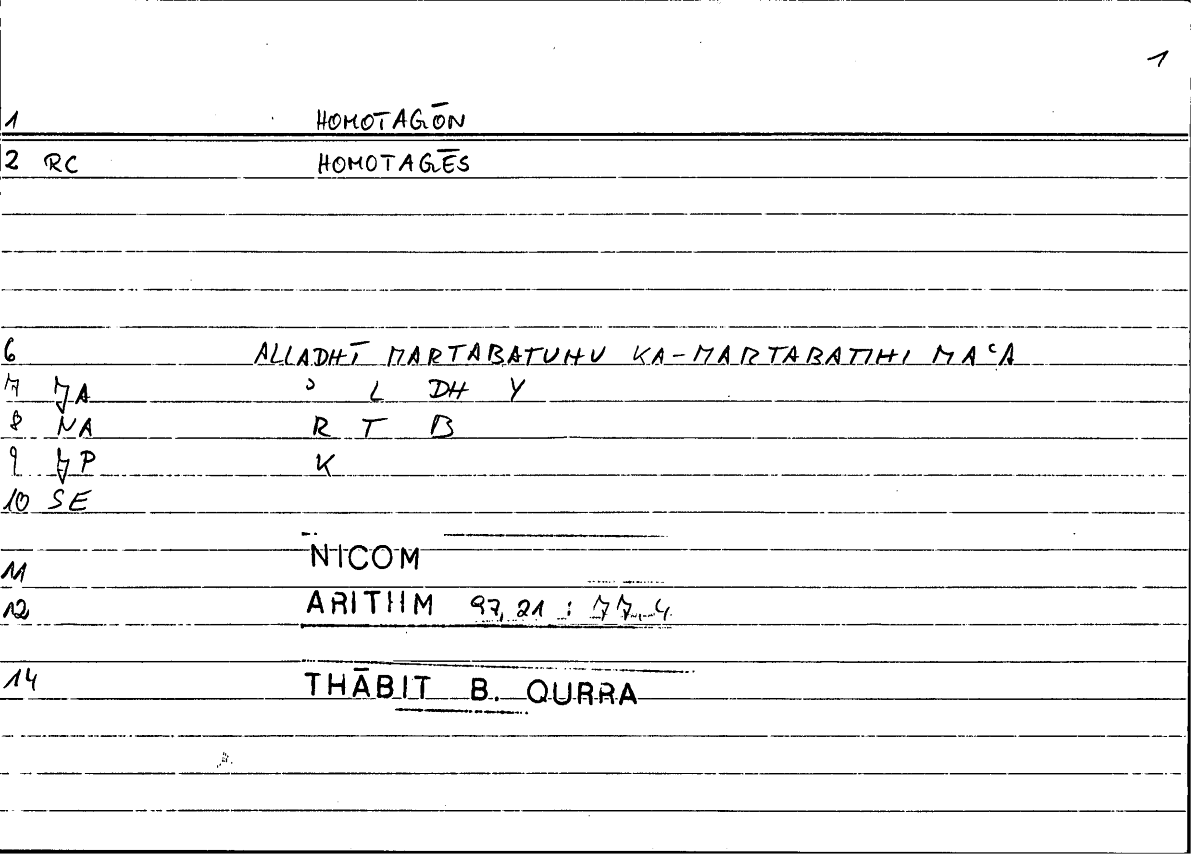 1
1 HOMOTAGŌN
2 RC HOMOTAGĒS
6 ALLADHĪ MARTABATUHU KA-MARTABATIHI MAʿA
7 JA ʾ L DH Y
8 NA R T B
9 JP K
10 SE
11 NICOM
12 ARITHM 97,21 : 77,4
14 THĀBIT B. QURRA